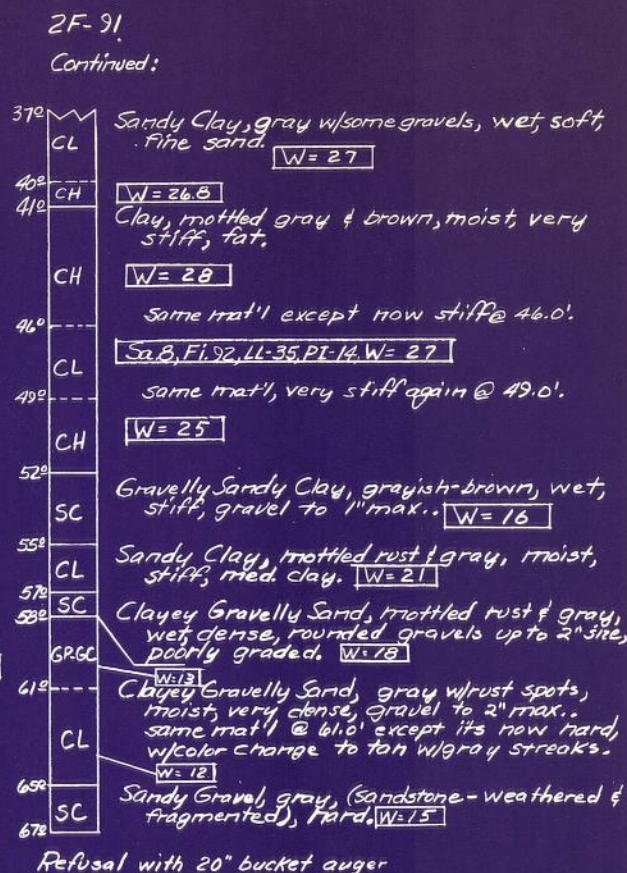 2F-91
Continued:
37.0
CL
Sandy Clay, gray w/some gravels, wet, soft,
fine sand.
W = 27
40.0
CH
W = 26.8
41.0
Clay, mottled gray & brown, moist, very
stiff, fat.
CH
W = 28
same mat'l except now stiff @ 46.0'.
46.0
CL
Sa.8, Fi.92, LL-35, PI-14, W = 27
same mat'l, very stiff again @ 49.0'.
49.0
CH
W = 25
52.0
Gravelly Sandy Clay, grayish-brown, wet,
SC
stiff, gravel to 1" max..
W = 16
55.0
Sandy Clay, mottled rust & gray, moist,
CL
stiff, med. clay.
W = 21
57.0
SC
58.0
Clayey Gravelly Sand, mottled rust & gray,
wet, dense, rounded gravels up to 2" size,
GP-GC
poorly graded.
W = 18
W = 13
61.0
Clayey Gravelly Sand, gray w/rust spots,
moist, very dense, gravel to 2" max..
same mat'l @ 61.0' except its now hard,
CL
w/color change to tan w/gray streaks.
W = 12
65.0
Sandy Gravel, gray, (sandstone - weathered &
SC
fragmented), hard.
W = 15
67.0
Refusal with 20" bucket auger